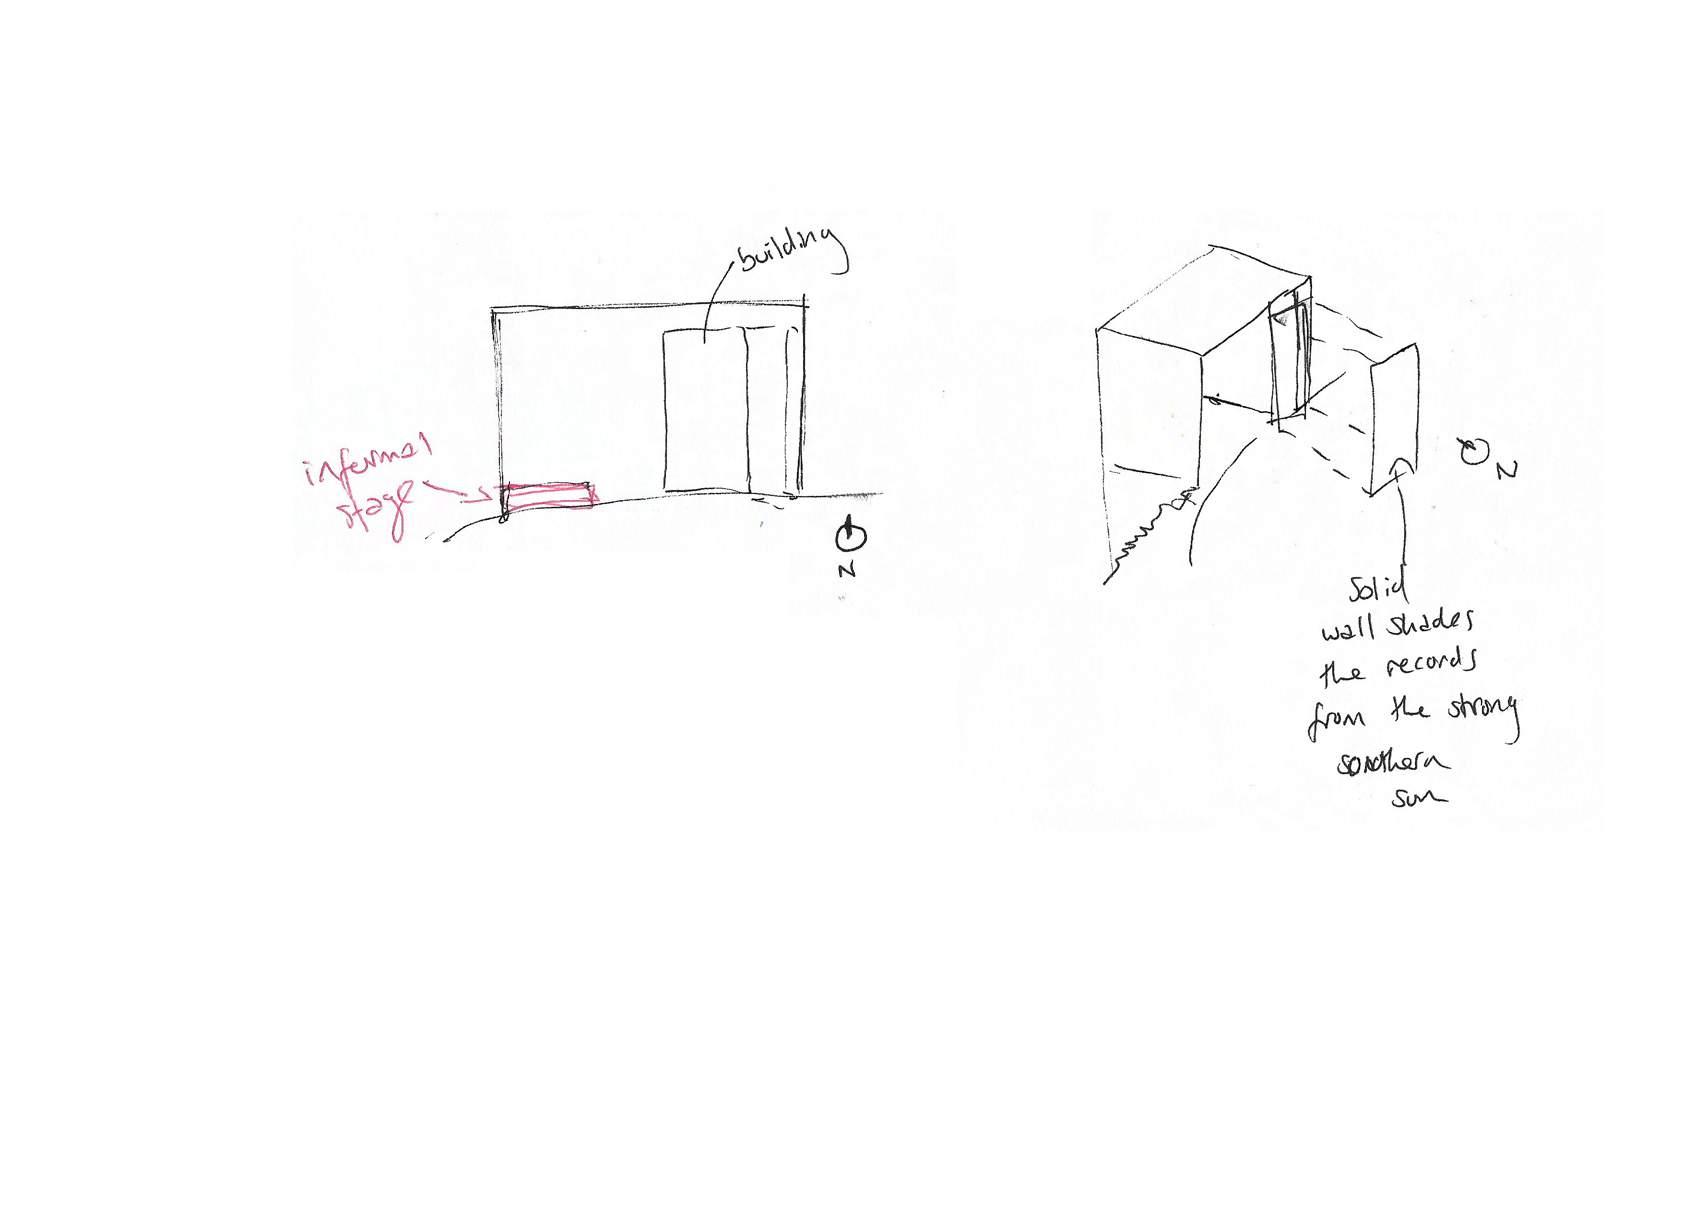 building
informal
stage
N
N
Solid
wall shades
the records
from the strong
southern
sun